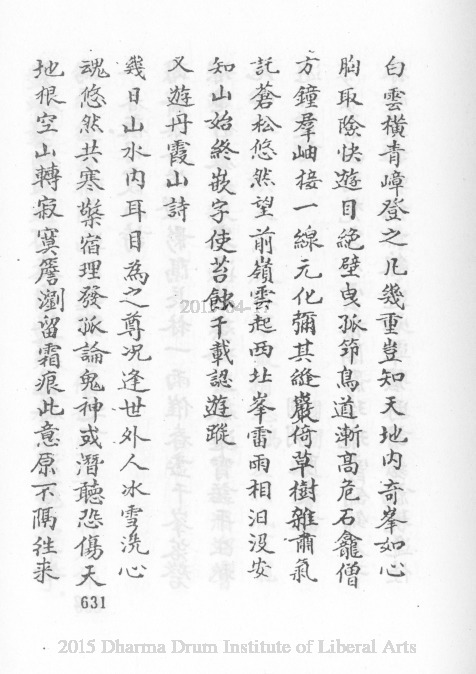 白雲橫青嶂登之凡幾重豈知天地內奇峯如心
胸取險快遊目絶壁曳孤笻鳥道漸高危石龕僧
方鐘羣岫接一線元化彌其縫巖倚草樹雜肅氣
託蒼松悠然望前嶺雲起西北峯雷雨相汨沒安
知山始終嵌字使苔蝕千載認遊蹤
又遊丹霞山詩
幾日山水內耳目為之尊況逢世外人冰雪洗心
魂悠然共寒檠宿理發孤論鬼神或潛聽恐傷天
地根空山轉寂寞簷瀏留霜痕此意原不隔往來
631
2015 Dharma Drum Institute of Liberal Arts